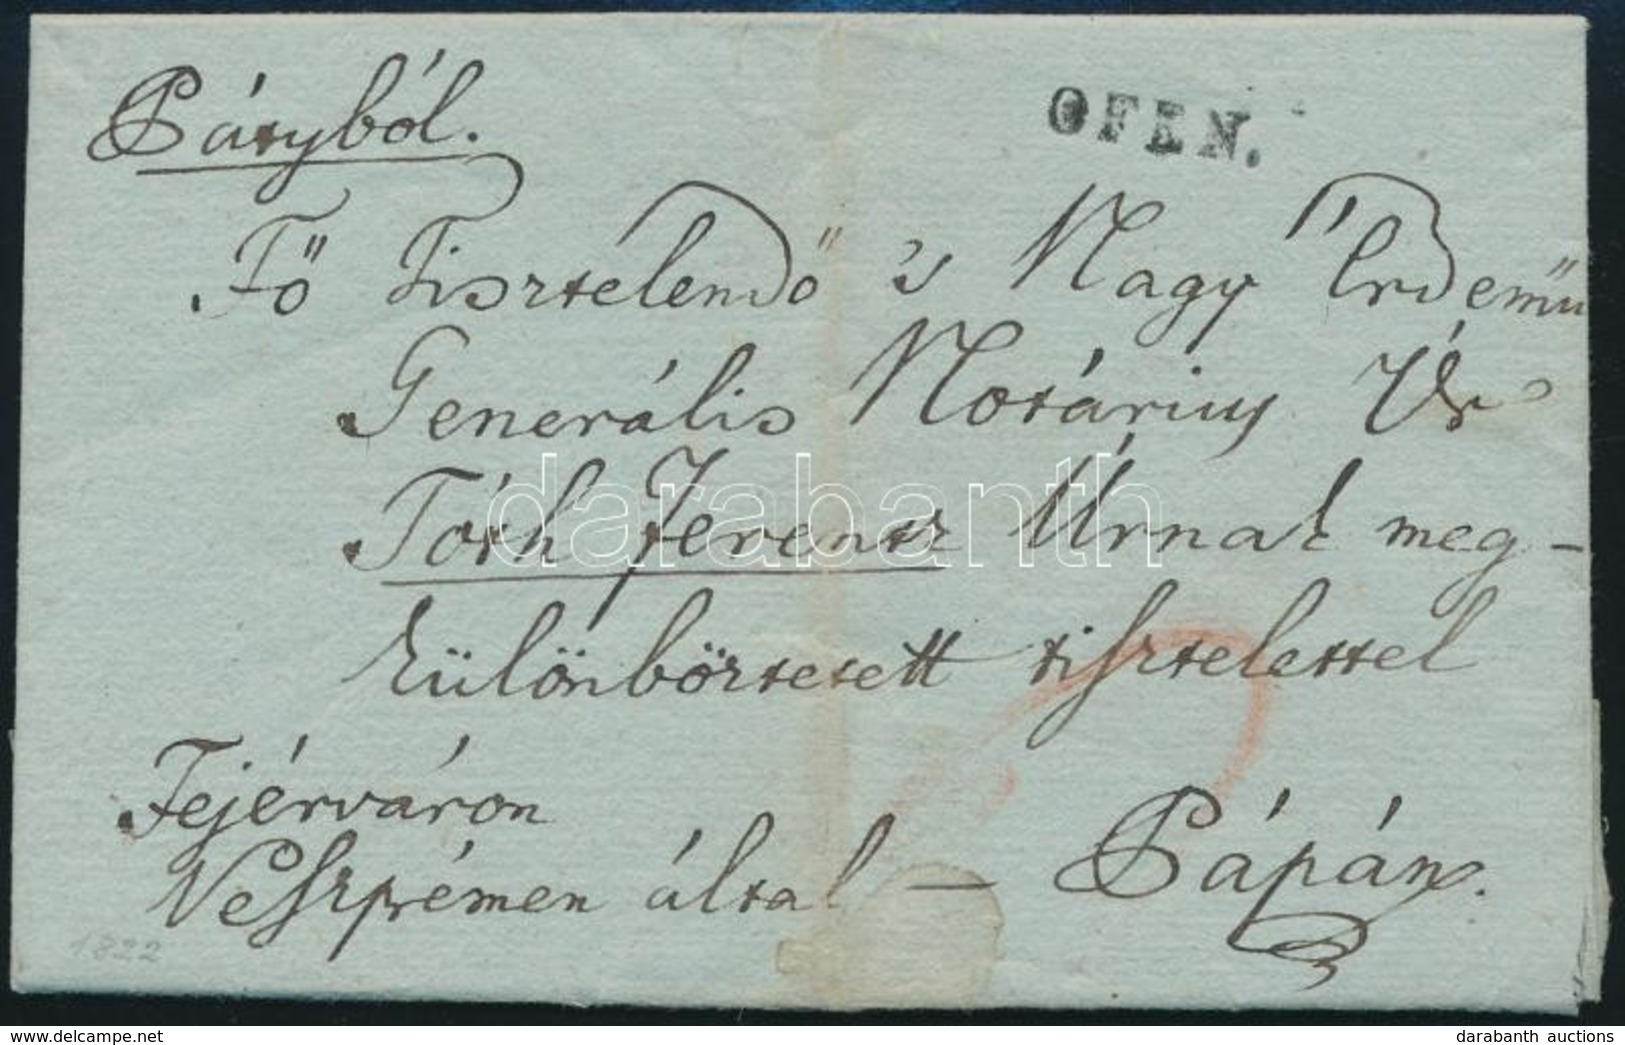 Pátyból.
OFEN.
Fő Tisztelendő 's Nagy Érdemű
Generális Notárius Úr
Tóth Ferentz Úrnak meg-
különböztetett tisztelettel
Fejérváron
Veszprémen által — Pápán.
1822
darabanth
darabanth auctions
www.delcampe.net